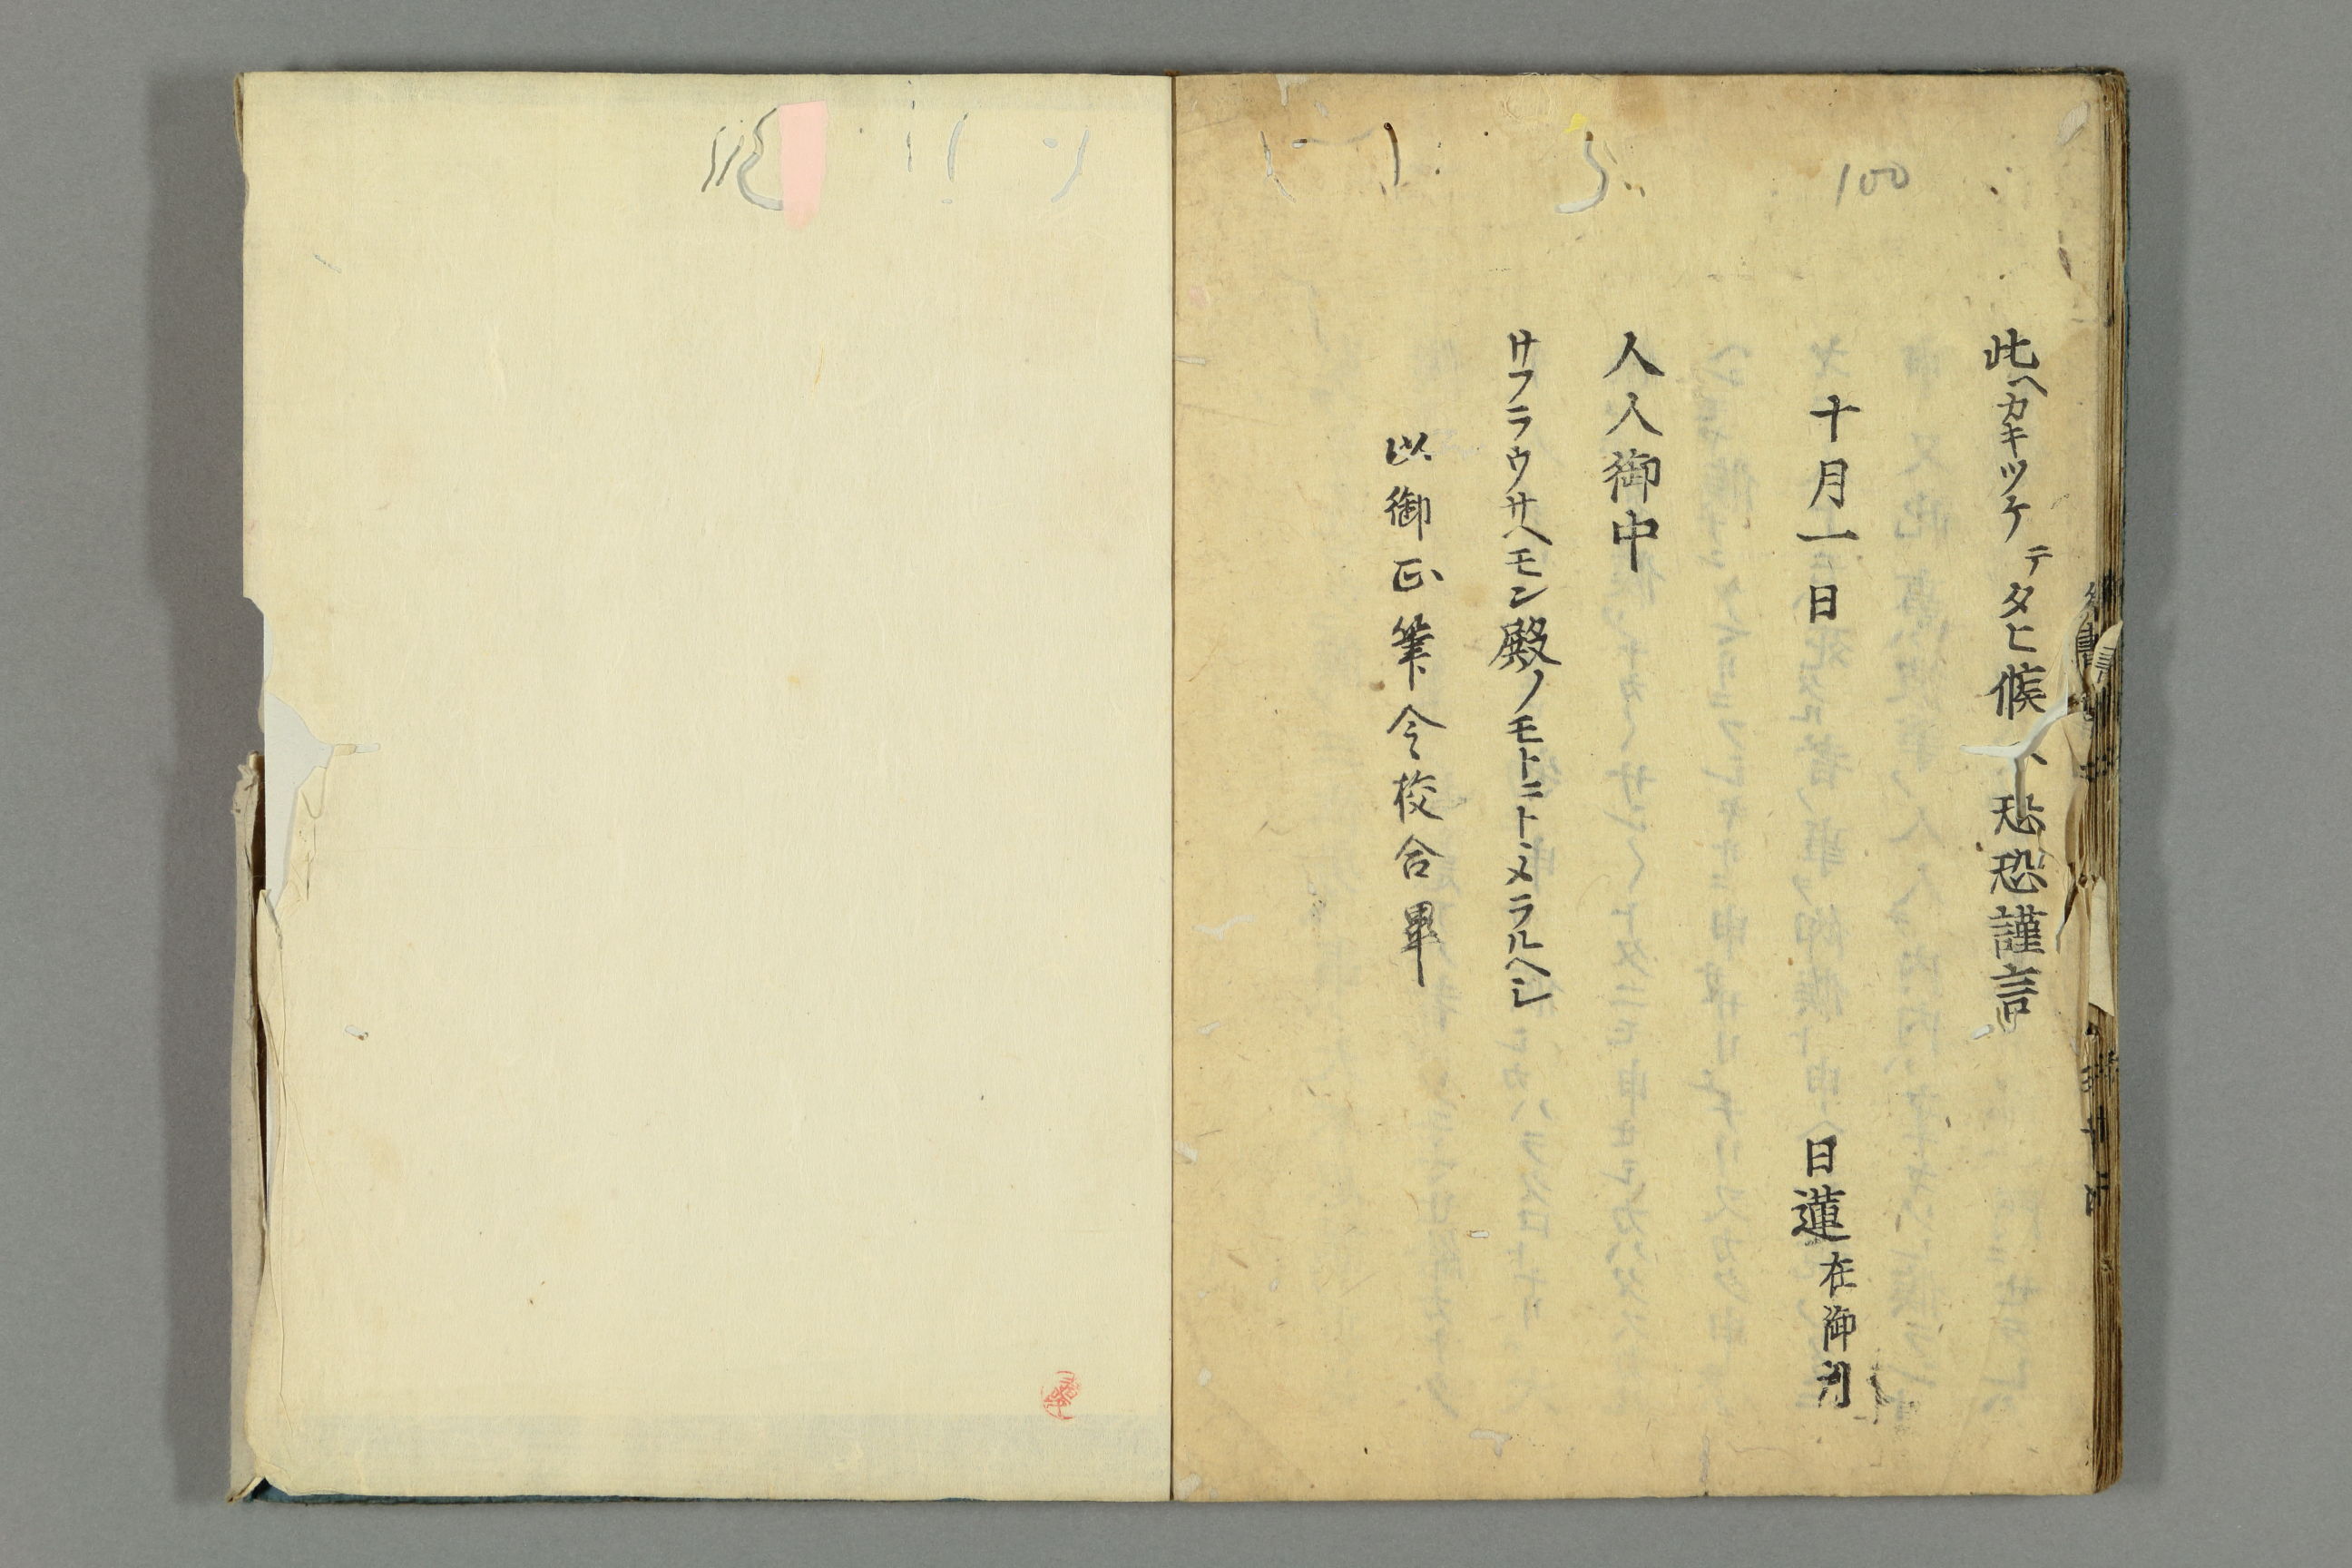 100
此ヘカキツケテタヒ候ヘ恐恐謹言
十月一日 日蓮在御判
人人御中
サフラウサヘモン殿ノモトニトヽメラルヘシ
以御正筆令校合畢